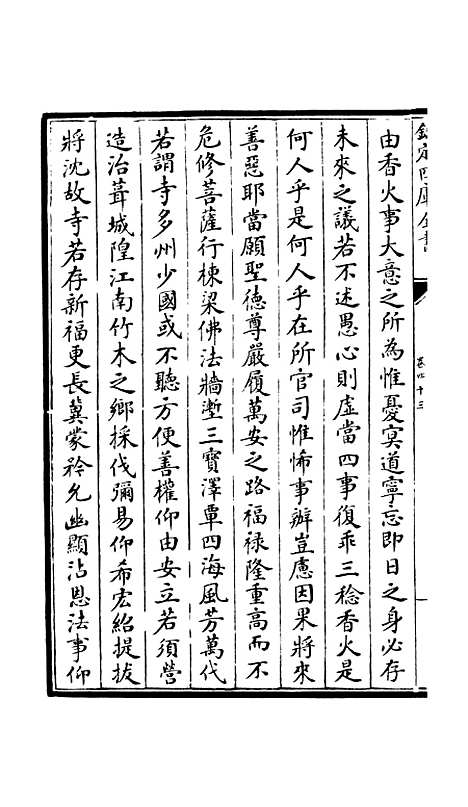 欽定四庫全書
卷四十三
由香火事大意之所為惟憂寞道寧忘即日之身必存
未來之議若不述愚心則虛當四事復乖三稔香火是
何人乎是何人乎在所官司惟怖事辦豈慮因果將來
善惡耶當願聖德尊嚴履萬安之路福祿隆重高而不
危修菩薩行棟梁佛法牆壍三寶澤覃四海風芳萬代
若謂寺多州少國或不聽方便善權仰由安立若須營
造治葺城隍江南竹木之鄉採伐彌易仰希宏紹提拔
將沈故寺若存新福更長冀蒙矜允幽顯沾恩法事仰